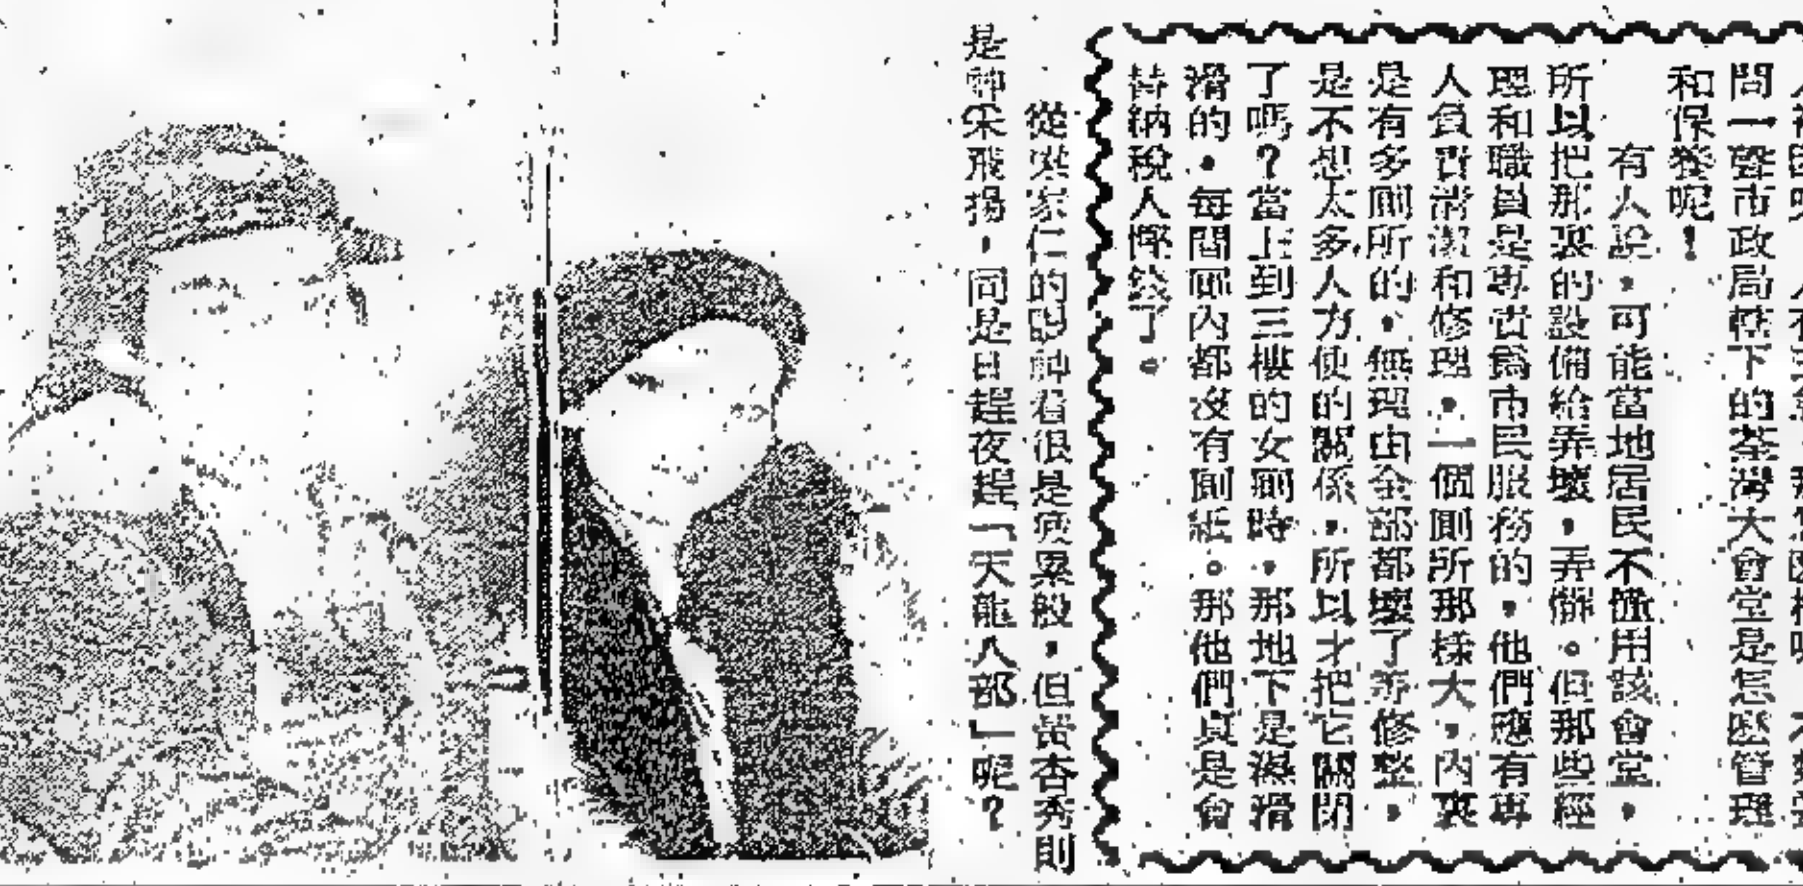 問一聲市政局轄下的荃灣大會堂是怎麼管理
和保養呢！
有人說，可能當地居民不懂用該會堂，
所以把那裏的設備給弄壞，弄髒。但那些經
理和職員是專責為市民服務的，他們應有專
人負責清潔和修理．一個廁所那樣大，內裏
是有多廁所的，無理由全部都壞了等修整，
是不想太多人力使的關係，所以才把它關閉
了嗎？當上到三樓的女廁時，那地下是濕滑
滑的．每間廁內都沒有廁紙。那他們真是會
替納稅人慳錢了。
從洪家仁的眼神看很是疲累般，但黃杏秀則
是神采飛揚，同是日趕夜趕「天龍八部」呢？